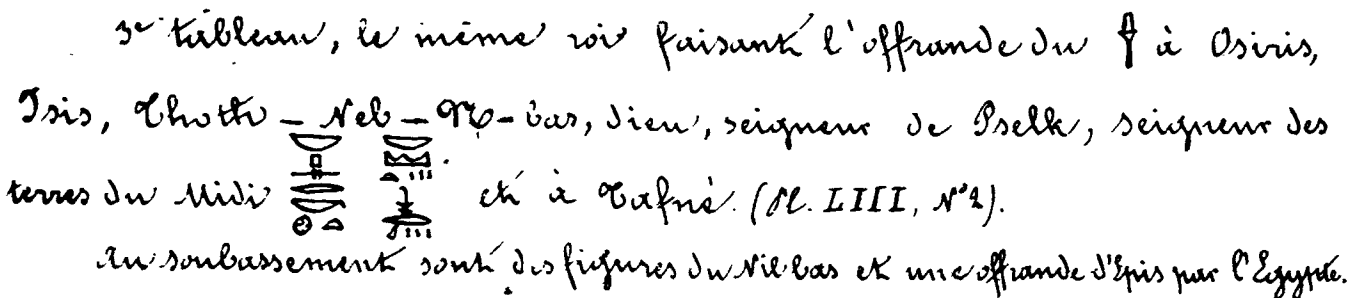 3e tableau, le même roi faisant l'offrande du à Osiris,
Isis, Thoth – Neb – M – bas, dieu, seigneur de Pselk, seigneur des
terres du Midi et à Tafné. (Pl. LIII, N° 2).
Au soubassement sont des figures du Nil bas et une offrande d'Epis par l'Egypte.